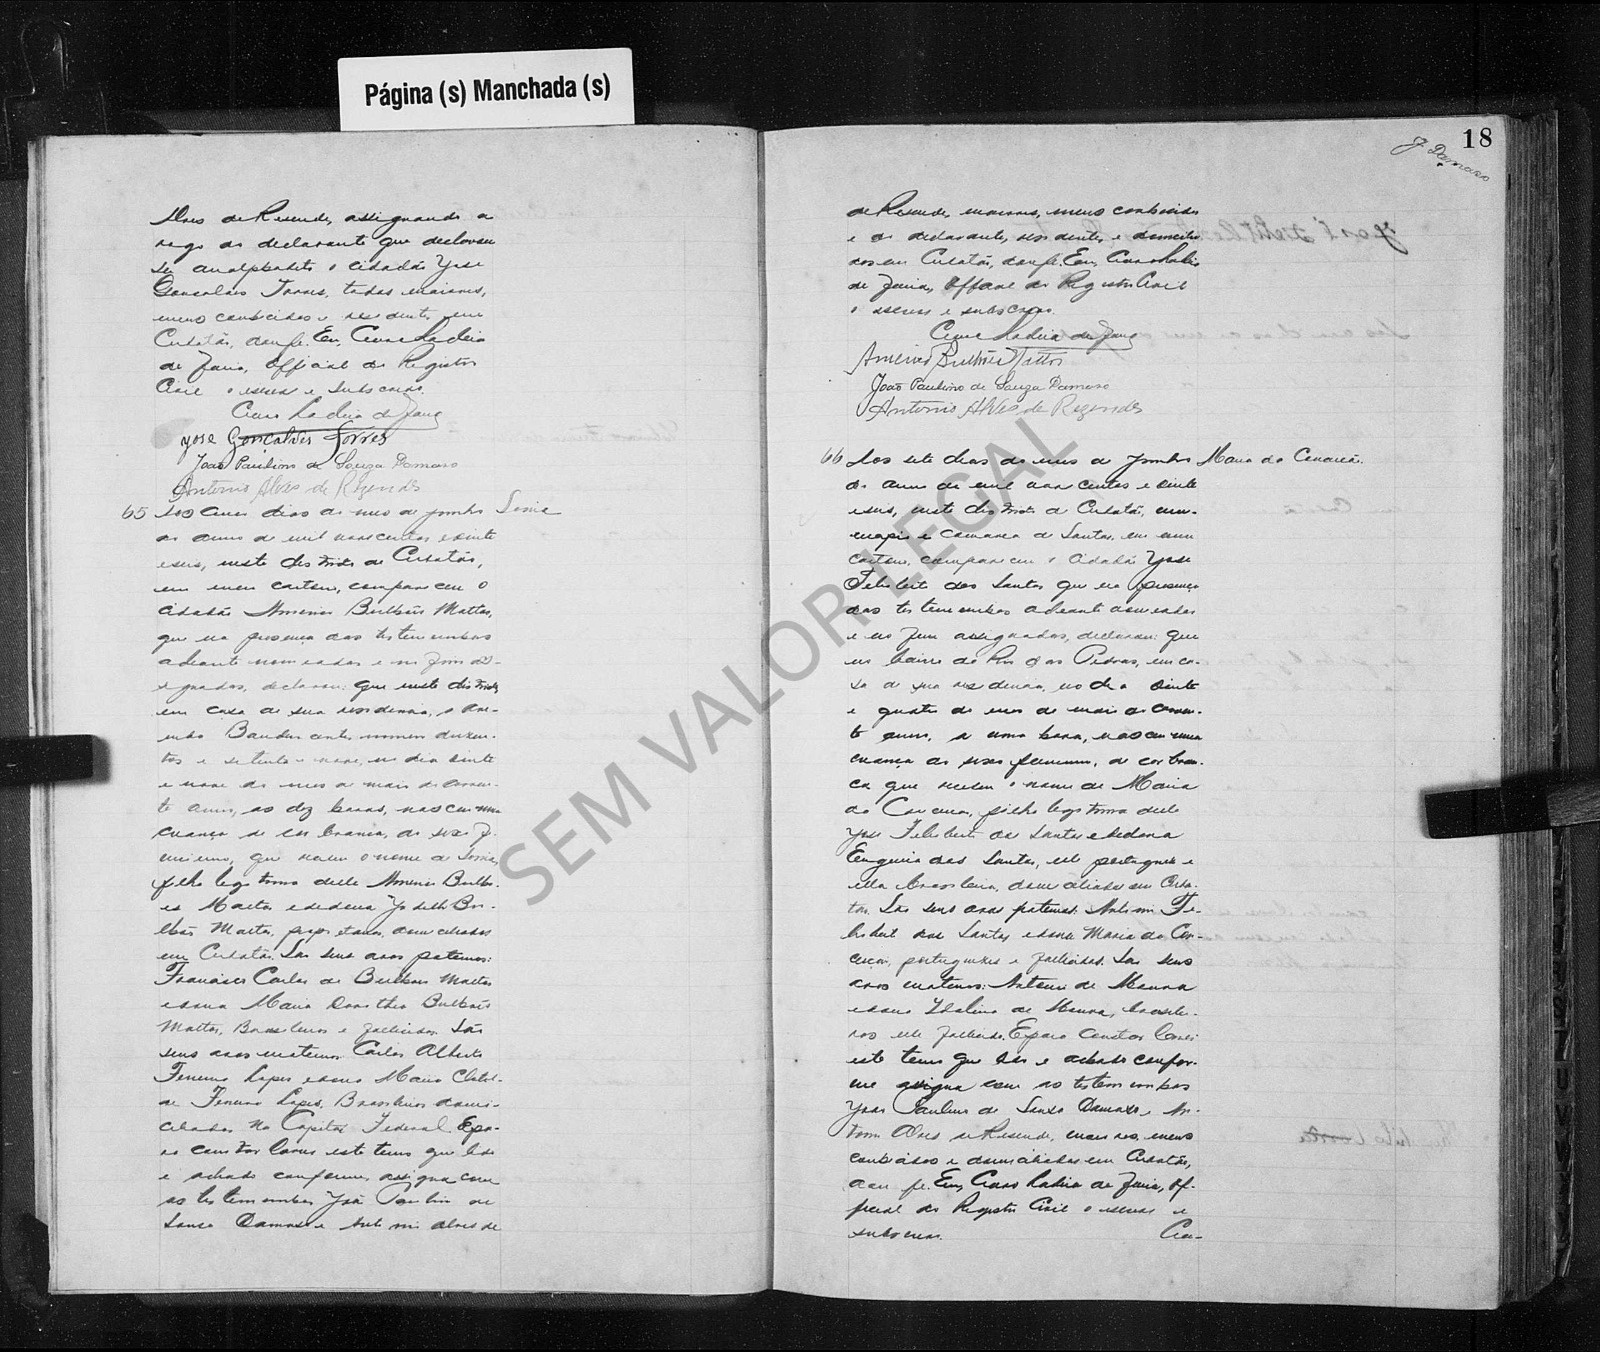 Página (s) Manchada (s)
18
J Damaso
Alves de Resende, assignando a
rogo do declarante que declarou
ser analphabeto o cidadão José
Gonsalves Torres, todos maiores,
meus conhecidos e residentes em
Cubatão, dou fé. Eu,
de Faria, Official do Registro
Civil o escrevi e subscrevo.
José Gonçalves Torres
João Paulino de Souza Damaso
Antonio Alves de Rezende
65 Aos cinco dias do mes de junho Sonia
do anno de mil novecentos e vinte
e seis, neste districto de Cubatão,
em meu cartorio, compareceu o
cidadão Americo Bulhões Mattos,
que na presença das testemunhas
adiante nomeadas e no fim as-
signadas, declarou: que neste districto,
em casa de sua residencia, a Ave-
nida Bandeirantes numero duzen-
tos e setenta e nove, no dia vinte
e nove do mes de maio do corren-
te anno, as dez horas, nasceu uma
criança de cor branca, do sexo fe-
minino, que recebeu o nome de Sonia,
filha legitima delle Americo Bulhões
Mattos e de dona
Mattos, domiciliados
em Cubatão. São seus avos paternos:
Francisco Carlos de Bulhões Mattos
e dona Maria Dorothea Bulhões
Mattos, Brasileiros e fallecidos. São
seus avos maternos Carlos Alberto
Ferreira Lopes e dona Maria
de Ferreira Lopes, Brasileiros domi-
ciliados na Capital Federal. E pa-
ra constar lavrei este termo que lido
e achado conforme, assigna com
as testemunhas João Paulino de
Souza Damaso e Antonio Alves de
de Resende, maiores, meus conhecidos
e do declarante, residentes e domicilia-
dos em Cubatão, dou fé. Eu,
de Faria, Official do Registro Civil
o escrevi e subscrevo.
Americo Bulhões Mattos
João Paulino de Souza Damaso
Antonio Alves de Rezende
66 Aos sete dias do mes de junho Maria da Conceição
do anno de mil novecentos e vinte
e seis, neste districto de Cubatão, mu-
nicipio e comarca de Santos, em meu
cartorio, compareceu o cidadão José
Feliberto dos Santos que na presença
das testemunhas adeante nomeadas
e no fim assignadas, declarou: que
no bairro do Rio das Pedras, em ca-
sa de sua residencia, no dia vinte
e quatro do mes de maio do corren-
te anno, a uma hora, nasceu uma
criança do sexo feminino, de cor bran-
ca que recebeu o nome de Maria
da Conceição, filha legitima delle
José Feliberto dos Santos e de dona
dos Santos, elle portuguez e
ella brasileira, domiciliados em Cuba-
tão. São seus avos paternos: Antonio Fe-
liberto dos Santos e dona Maria da Con-
ceição, portuguezes e fallecidos. São seus
avos maternos: Antonio de Moura
e dona Idalina de Moura, brasilei-
ros elle fallecido. E para constar lavrei
este termo que lido e achado confor-
me assigna com as testemunhas
João Paulino de Souza Damaso e An-
tonio Alves de Resende, maiores, meus
conhecidos e domiciliados em Cubatão,
dou fé. Eu, de Faria, Of-
ficial do Registro Civil o escrevi e
subscrevo.
SEM VALOR LEGAL